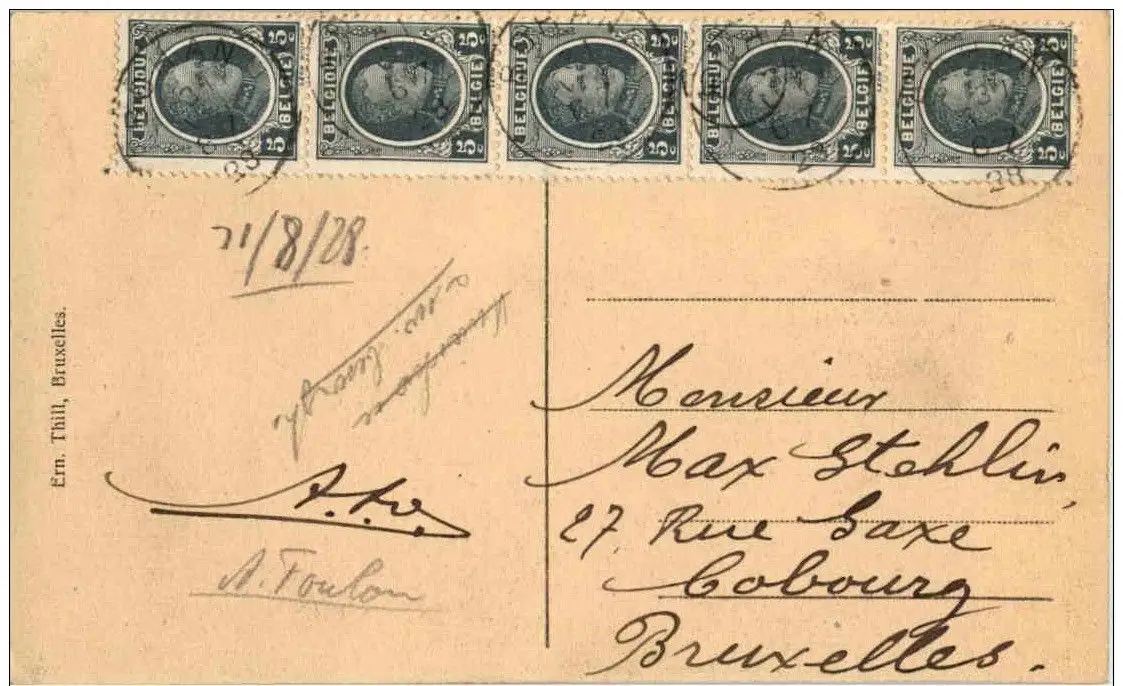 BELGIQUE 5c 5c (BELGIE)
BELGIQUE 5c 5c (BELGIE)
BELGIQUE 5c 5c (BELGIE)
BELGIQUE 5c 5c (BELGIE)
BELGIQUE 5c 5c (BELGIE)
28
28
21/8/28.
Ern. Thill, Bruxelles.
A. Foulon
Monsieur
Max Stehlin,
27, Rue Saxe
Cobourg
Bruxelles.